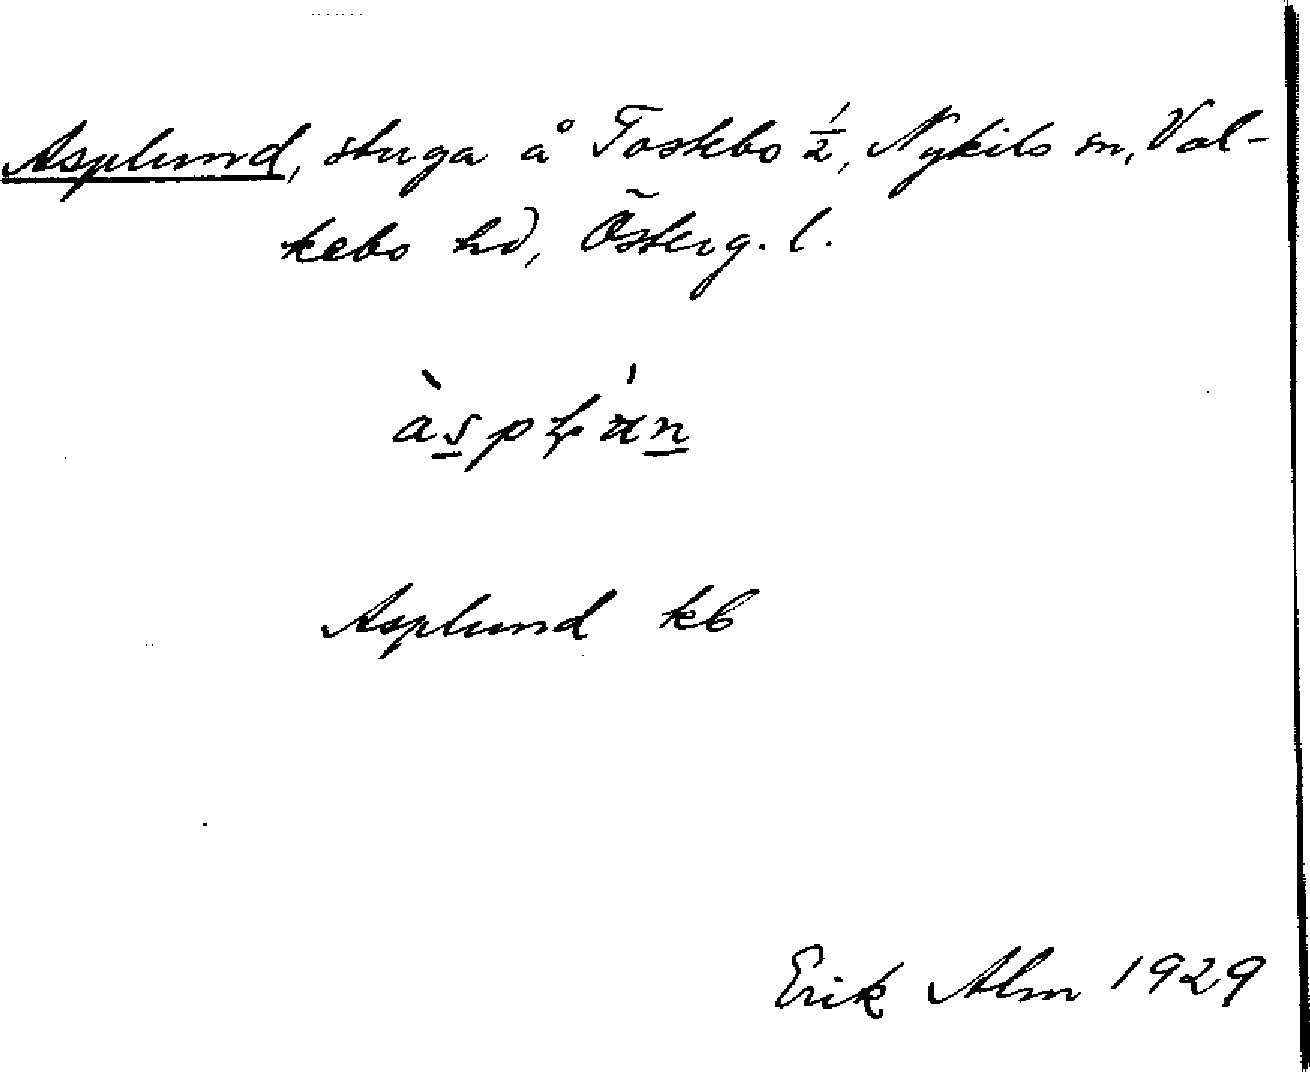 Asplund, stuga å Toskebo ½, Nykils sn, Val-
kebo hd, Österg. l.
Asplund kb
Erik Alm 1929